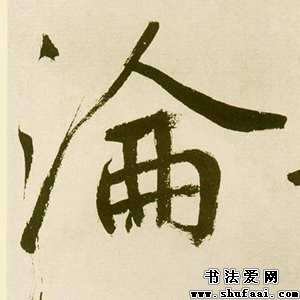 淪
书法爱网
www.shufaai.com